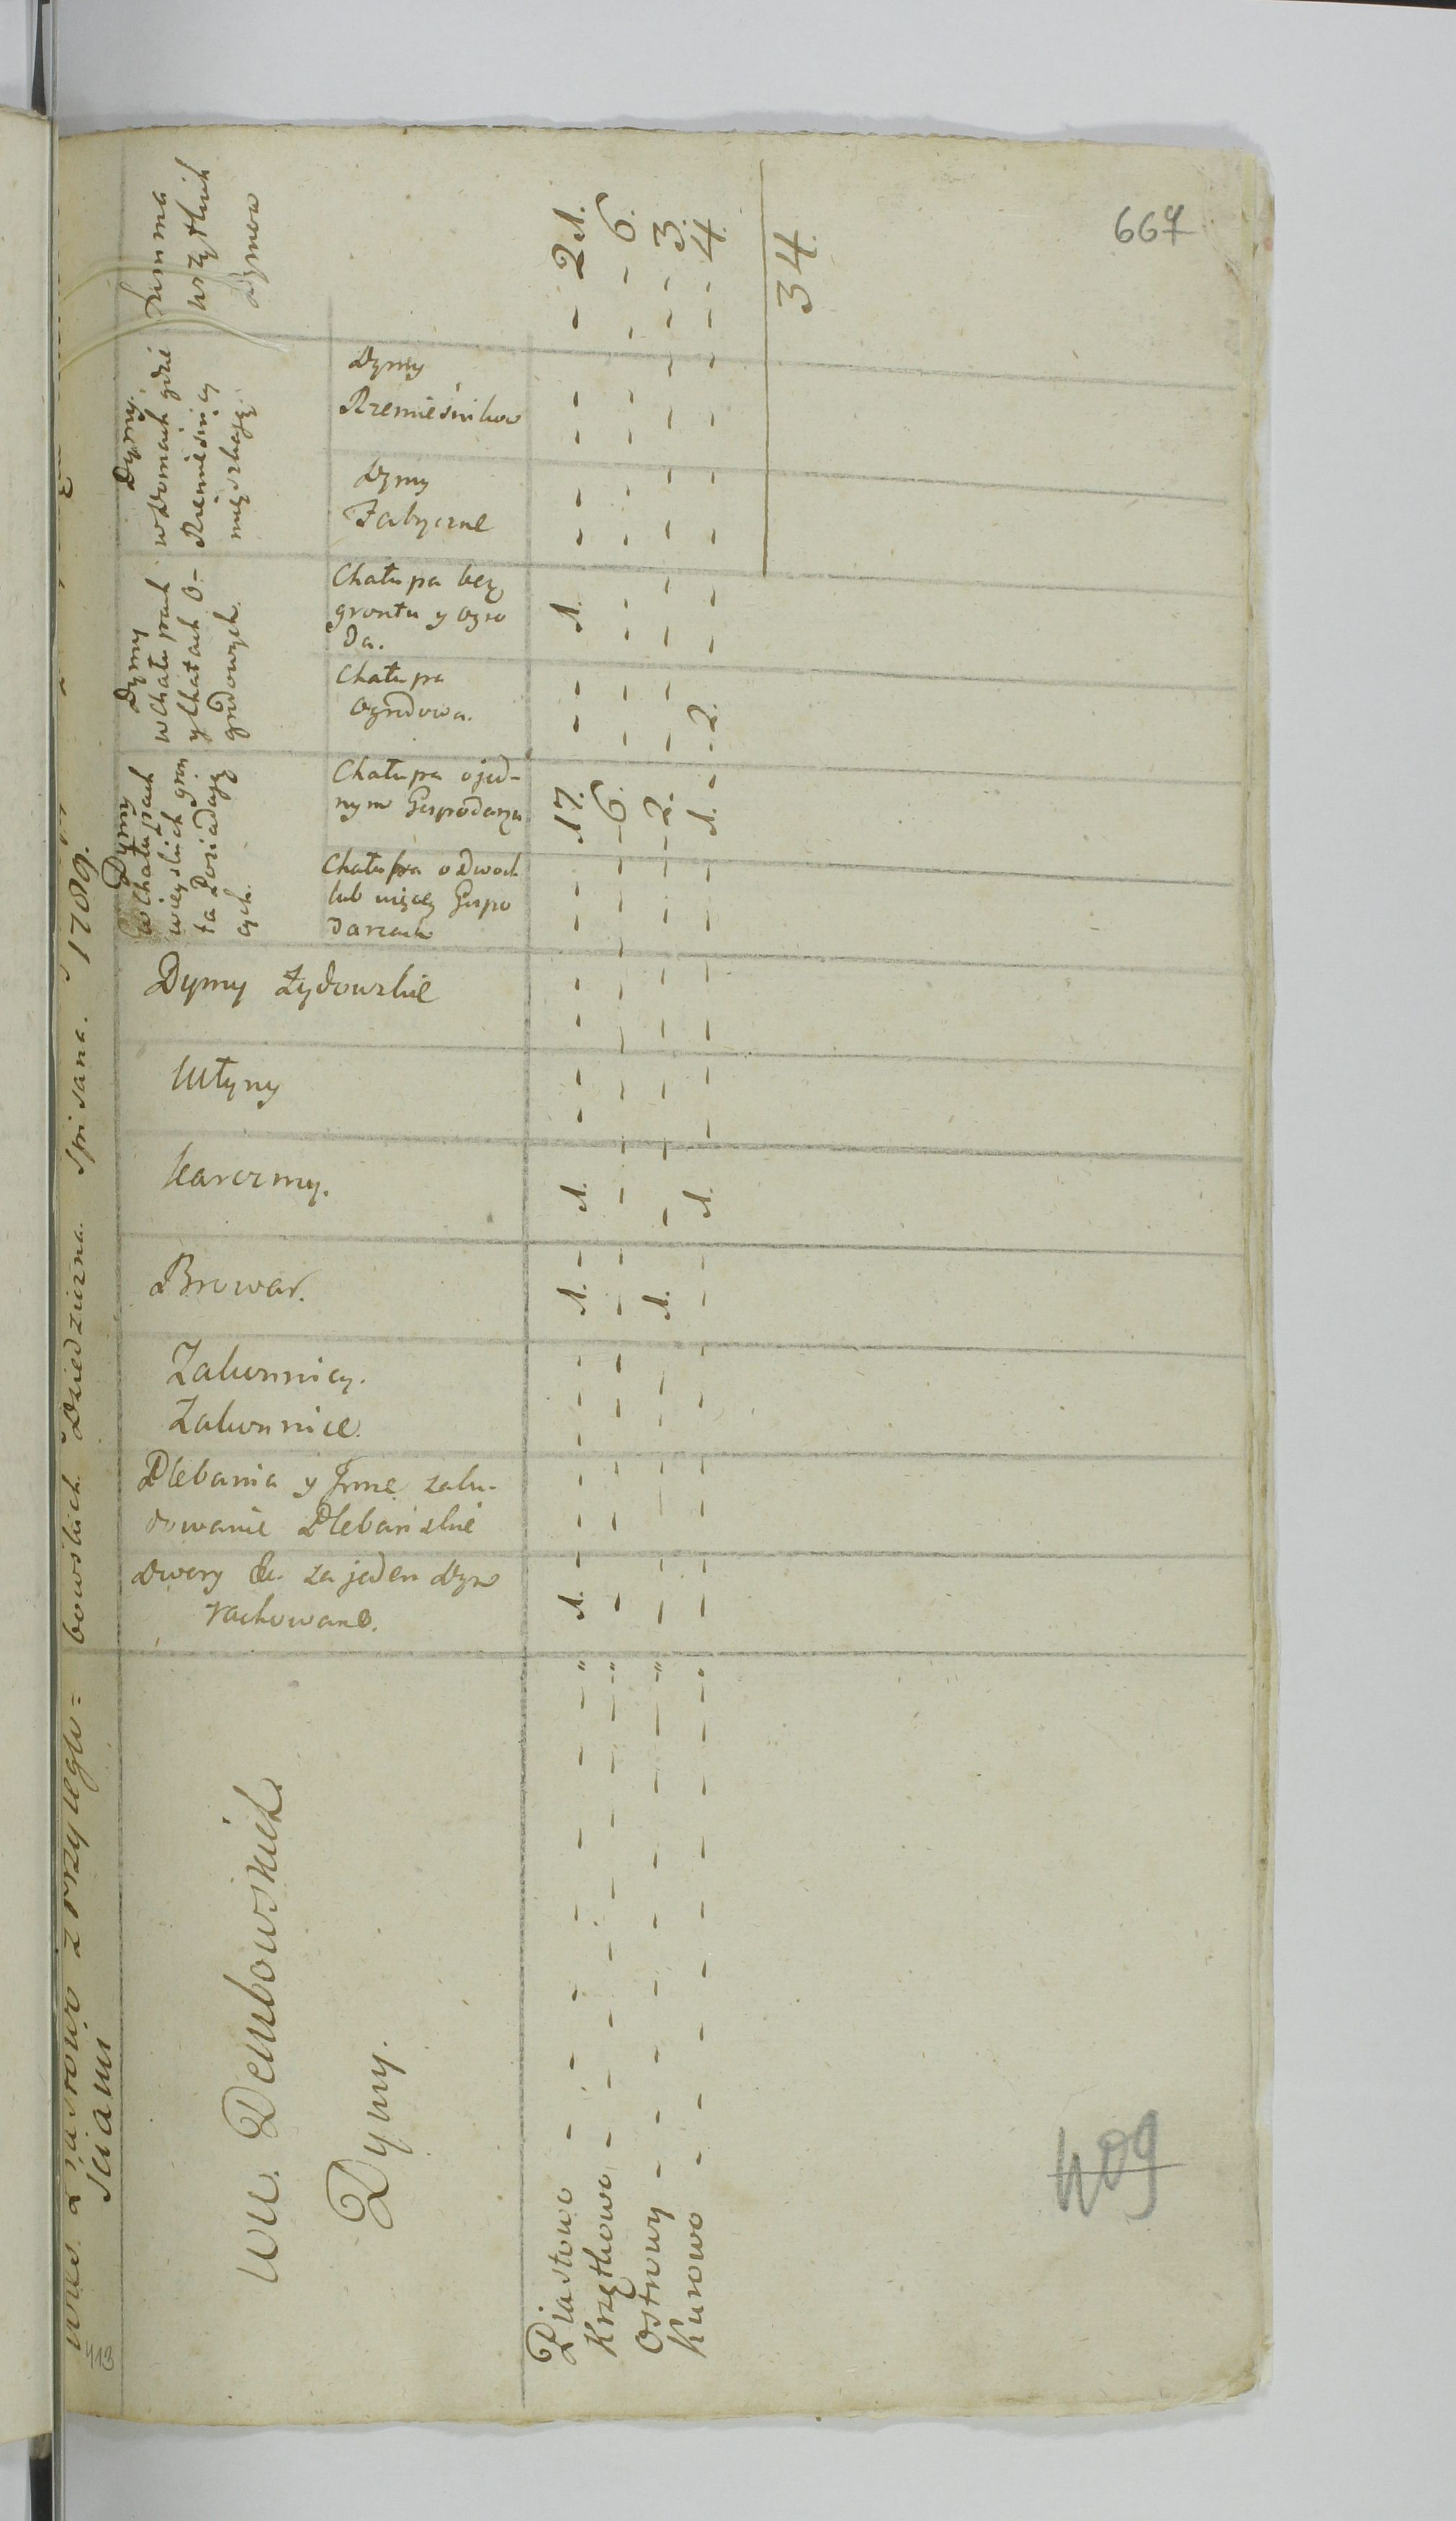 667
Wies Piastowo z Przyleglo=
sciami
bowskich Dziedziczna. Spisana. 1789.
WW. Dembowskich
Dymy.
Dwory &c. za jeden dym
rachowane.
Plebania y Jnne zabu-
dowanie Plebanskie
Zakonnicy.
Zakonnice.
Browar.
karczmy.
Młyny
Dymy Żydowskie
Dymy
w Chałupach
wieyskich gron
ta Posiadają
cych.
Chałupa o dwoch
lub więcey Gospo
darzach
Chałupa o jed-
nym Gospodarzu
Dymy
w Chałupach
y Chatach O-
grodowych.
Chałupa
Ogrodowa.
Chałupa bez
grontu y ogro
da.
Dymy.
w Domach gdzie
Rzemiesnicy
mieszkają.
Dymy
Fabryczne
Dymy
Rzemiesnikow
Summa
wszytkich
dymow
Piastowo - - - " 1. - - - 1. - 1. - - - 17. - - 1. - - - 21.
Krzętkowo - - - " - - - 6. - - - 6.
Ostrowy - - - " - - - 1. - - - 2. - - - 3.
Kurowo - - - " - - - 1. - - - 1. - 2. - - - 4.
34.
409
413